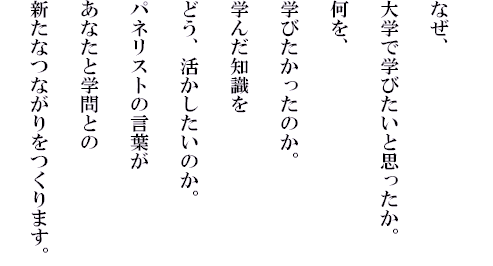 なぜ、
大学で学びたいと思ったか。
何を、
学びたかったのか。
学んだ知識を
どう、活かしたいのか。
パネリストの言葉が
あなたと学問との
新たなつながりをつくります。